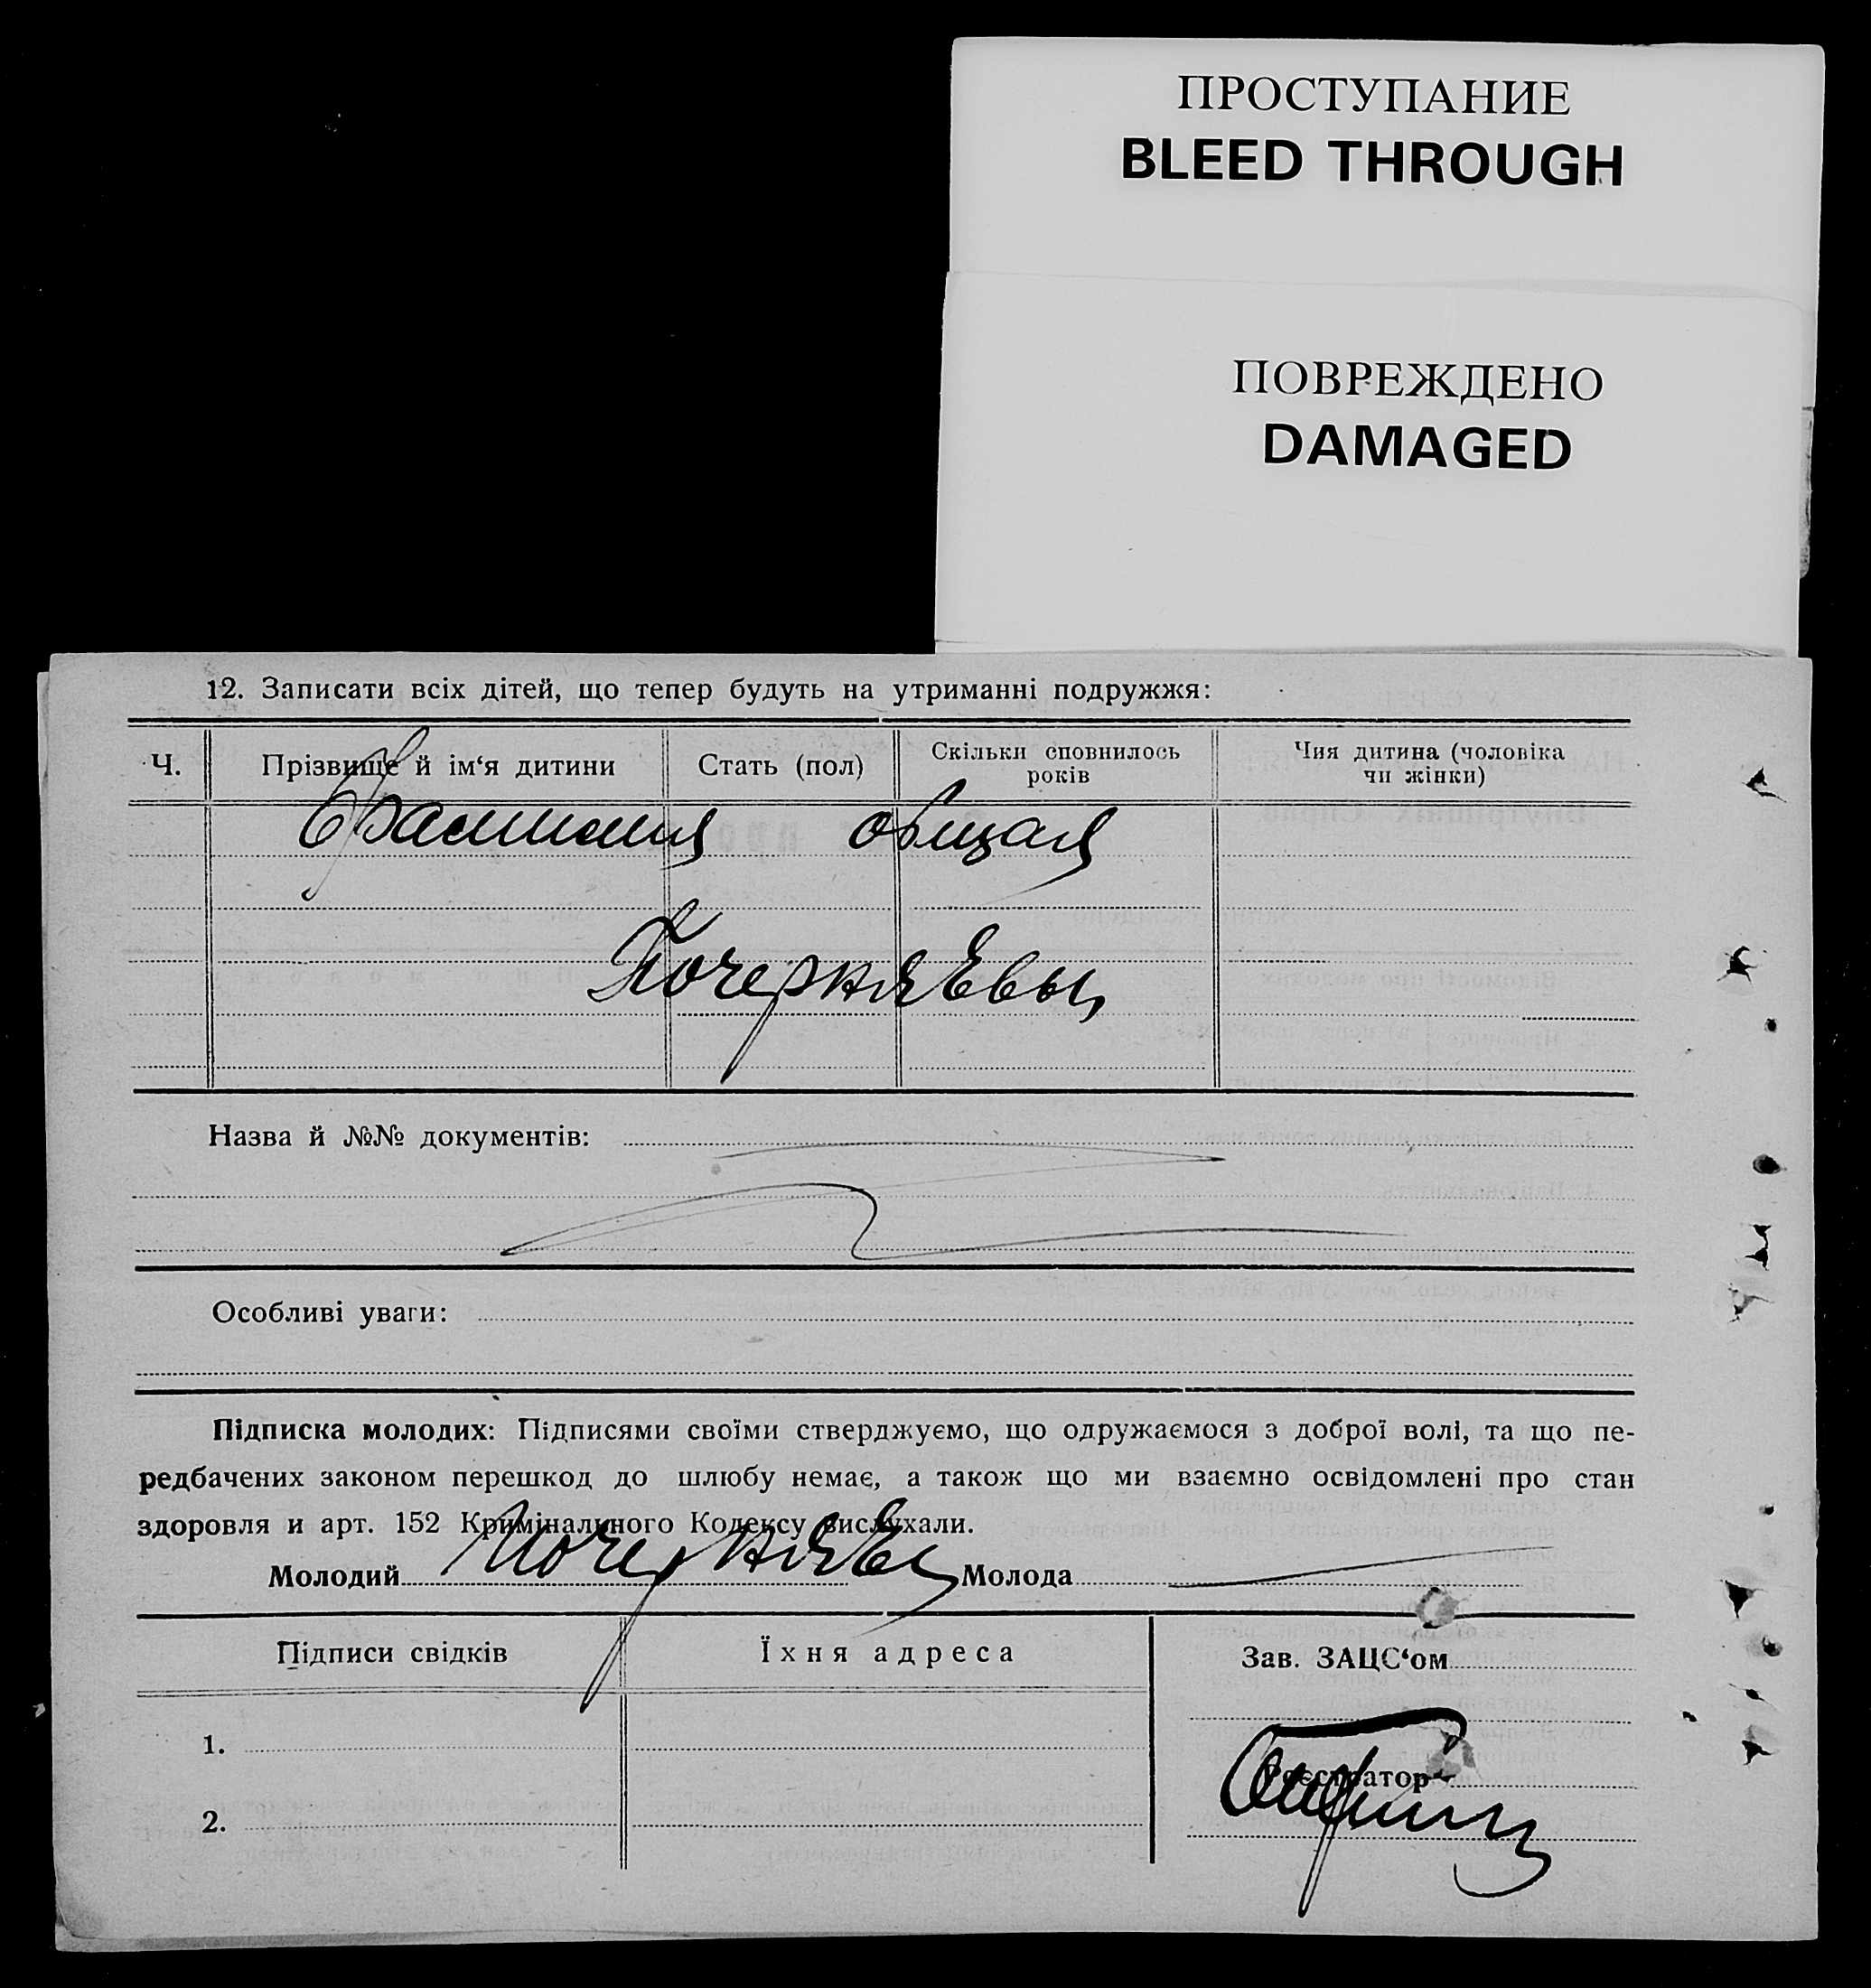 ПРОСТУПАНИЕ
BLEED THROUGH
ПОВРЕЖДЕНО
DAMAGED
12. Записати всіх дітей, що тепер будуть на утриманні подружжя:
Ч.
Прізвище й ім‘я дитини
Стать (пол)
Скільки сповнилось
років
Чия дитина (чоловіка
чи жінки)
Фамилия общая
Назва й №№ документів:
Особливі уваги:
Підписка молодих: Підписями своїми стверджуємо, що одружаємося з доброї волі, та що пе-
редбачених законом перешкод до шлюбу немає, а також що ми взаємно освідомлені про стан
здоровля и арт. 152 Кримінального Кодексу вислухали.
Молодий
Молода
Підписи свідків
Їхня адреса
Зав. ЗАЦС‘ом
1.
Реєстратор
2.